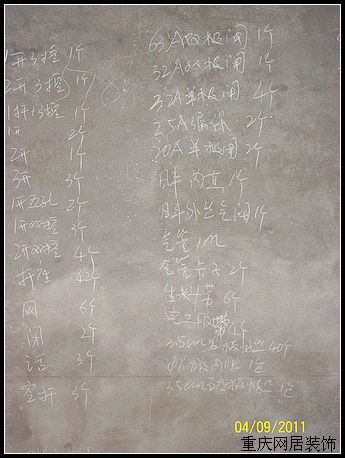 1开3控 1个
2开3控 1个
1开13控 1个
1开 2个
2开 1个
3开 3个
1开五孔 2个
1开双控 3个
2开双控 4个
插座 42个
网 6个
闭 2个
话 3个
空开 3个
63A双极闸 1个
32A双极闸 1个
32A单极闸 4个
25A漏保 2个
20A单极闸 2个
1个
气闸 1个
气管 1m
气管卡子 2个
生料带 6个
电工胶带 4个
3.5cm 40个
1包
3.5cm 1包
04/09/2011
重庆网居装饰